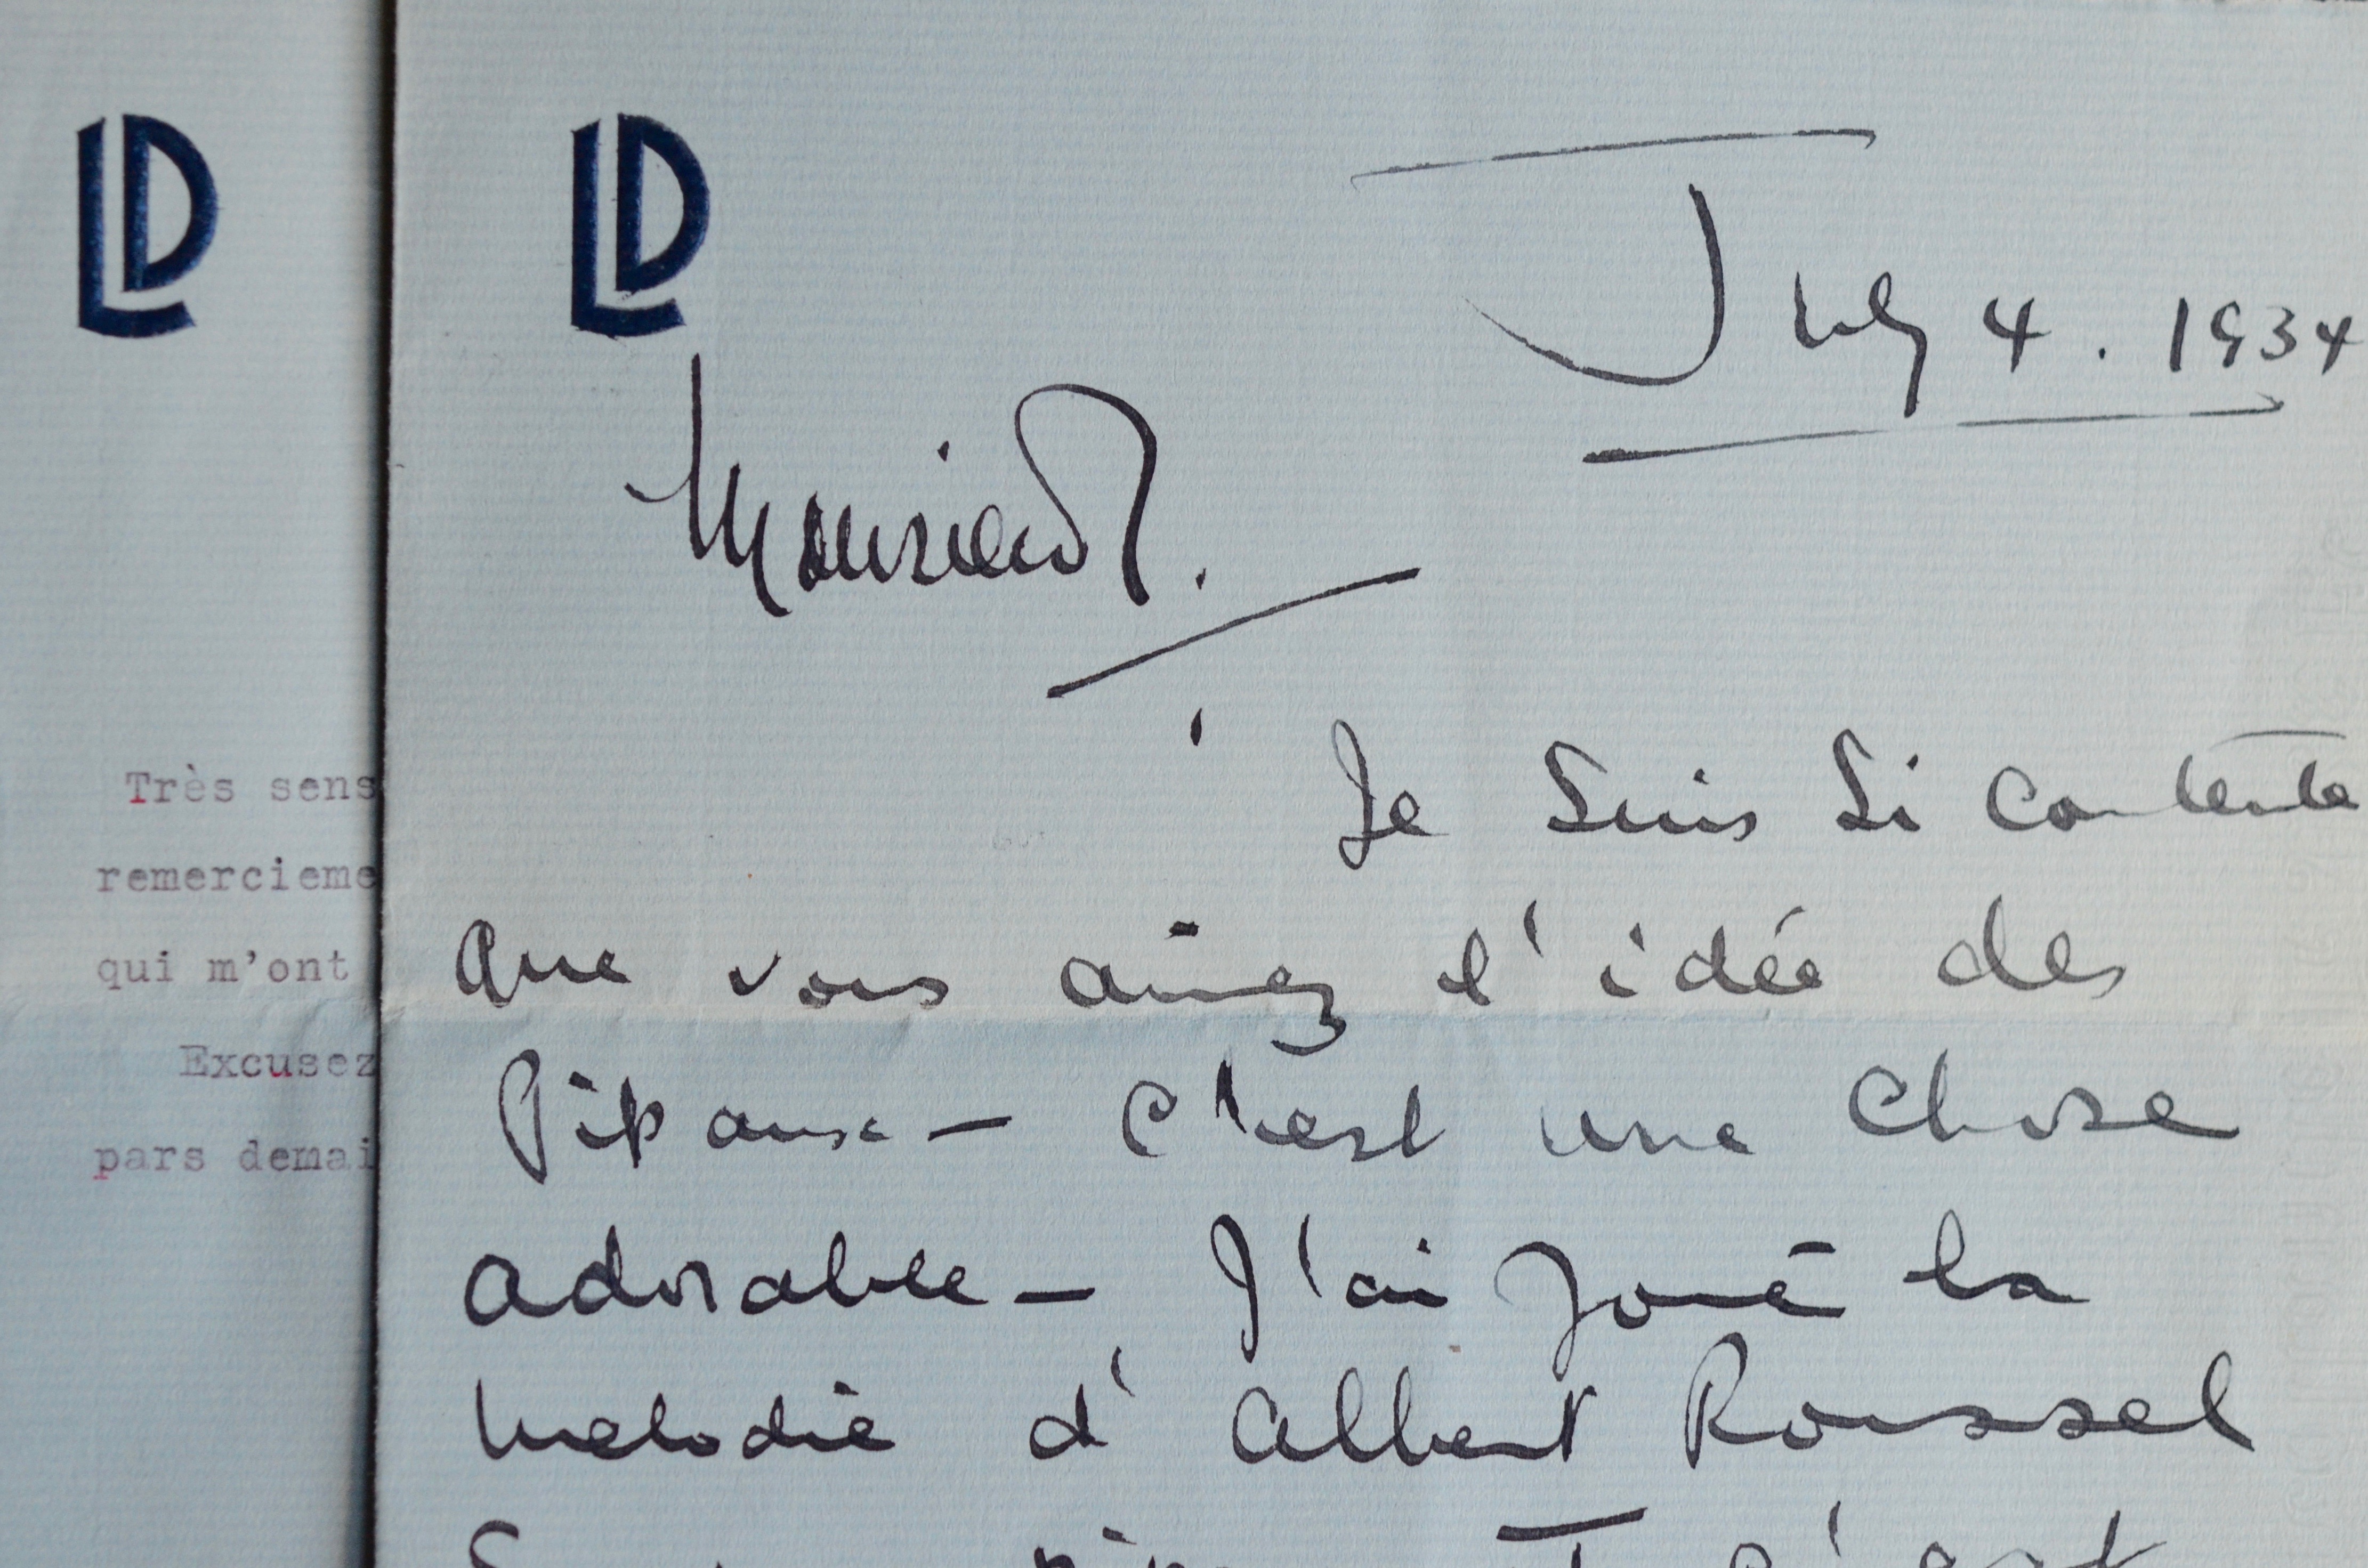 LD
Très sens
remercieme
qui m'ont
Excusez
pars demai
LD
July 4. 1934
Monsieur.
Je suis si contente
que vous aimez l'idée des
Pipaux — C'est une chose
adorable — J'ai joué la
melodie d'Albert Roussel